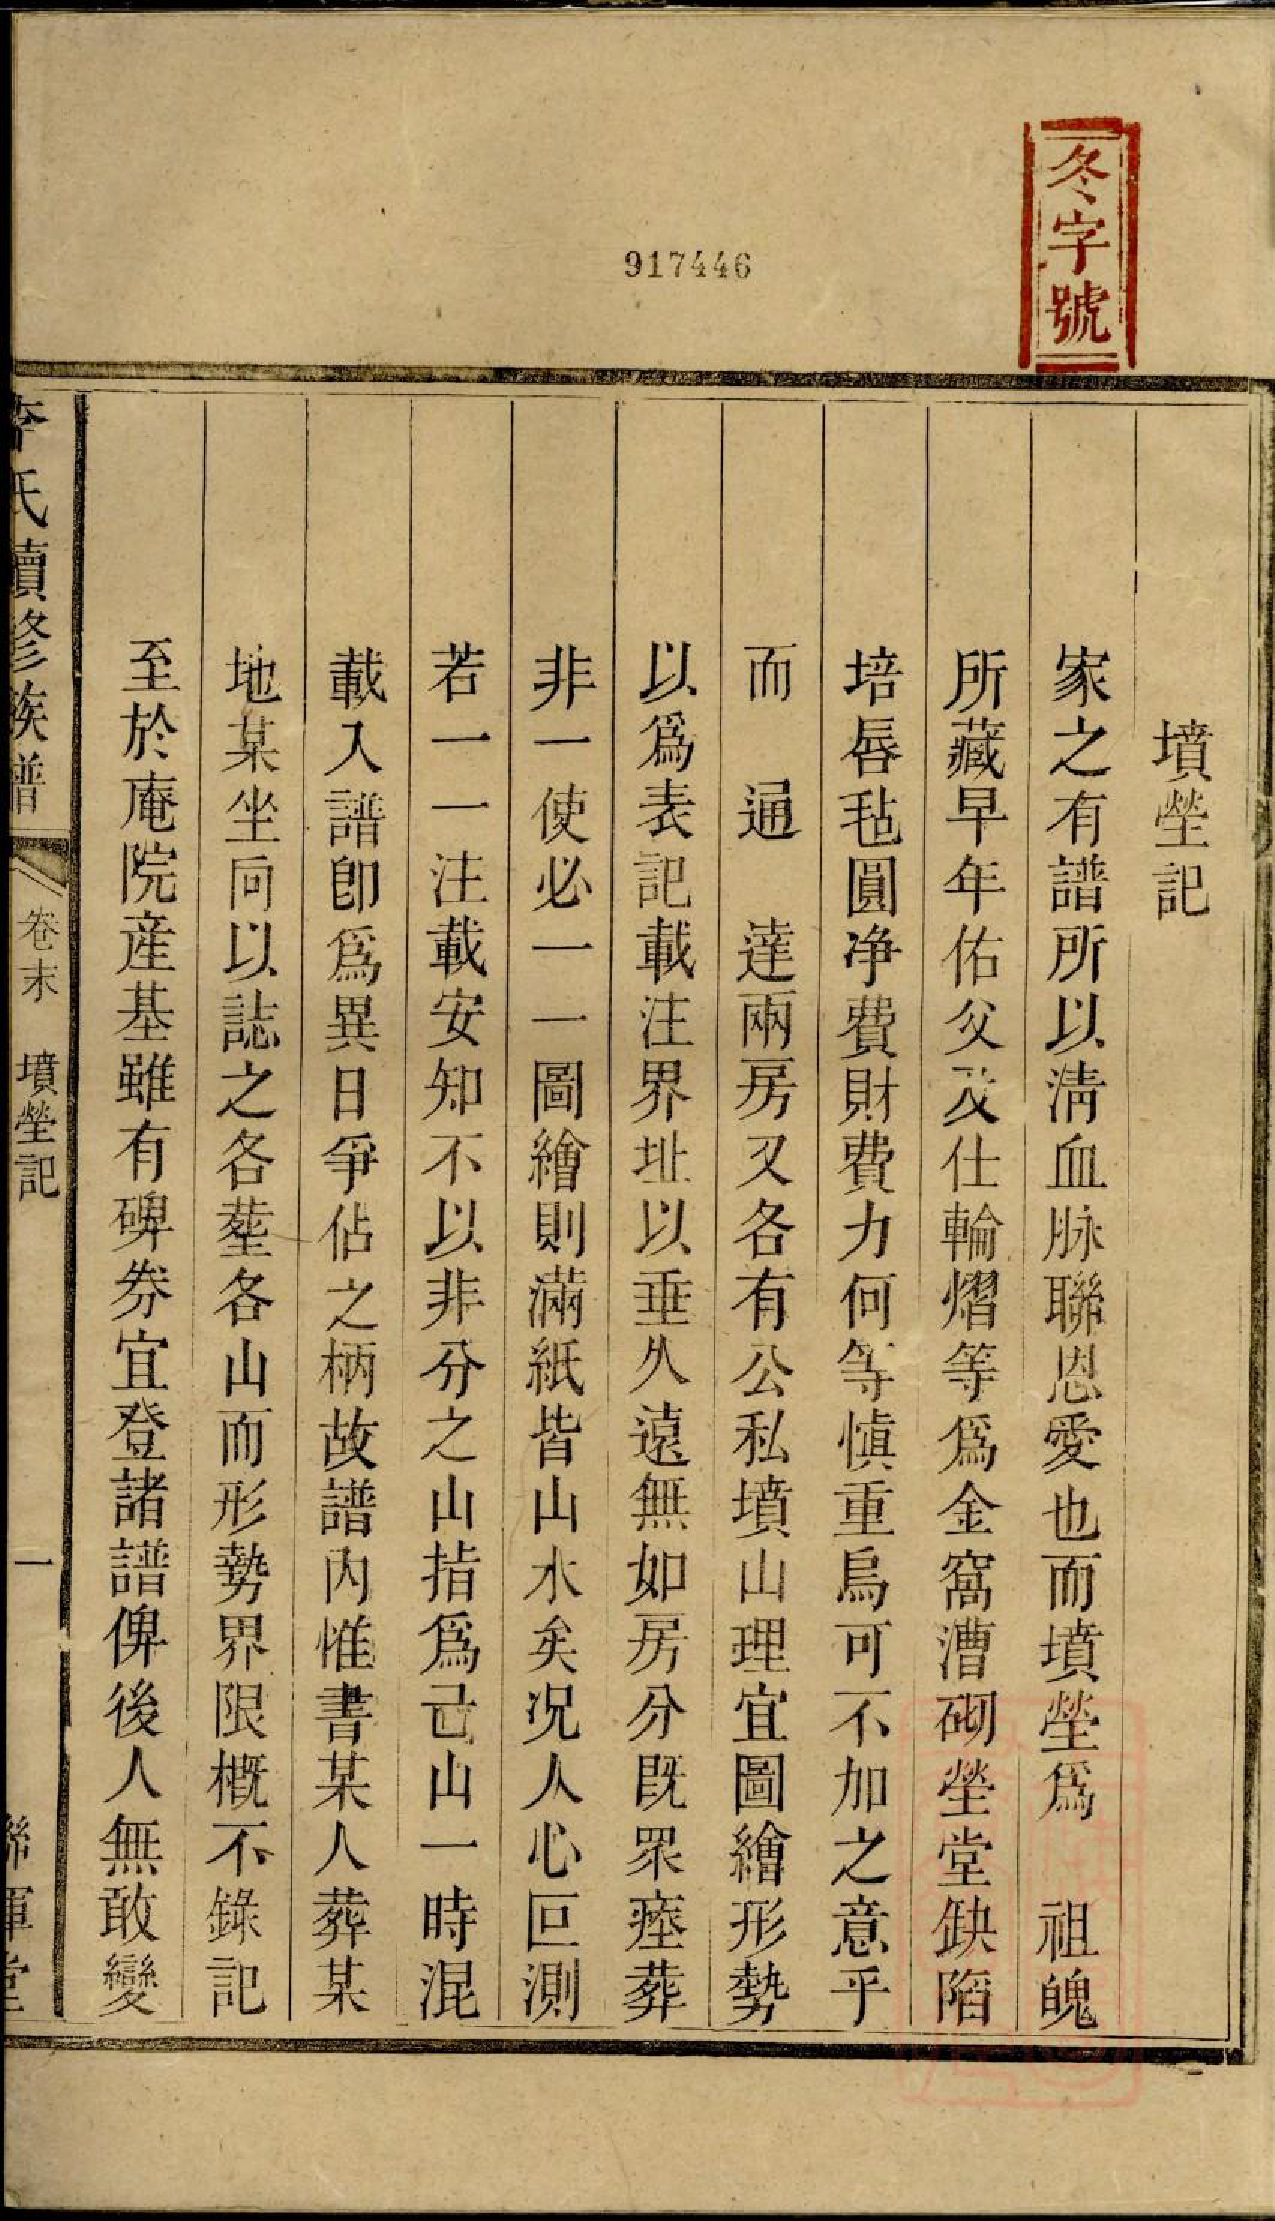 冬字號
917446
墳塋記
家之有譜所以淸血脉聯恩愛也而墳塋爲 祖魄
所藏早年佑父及仕輪熠等爲金窩漕砌塋堂缺陷
培唇毡圓净費財費力何等愼重烏可不加之意乎
而 通 達兩房又各有公私墳山理宜圖繪形勢
以爲表記載注界址以垂久遠無如房分既眾瘞葬
非一使必一一圖繪則滿紙皆山水矣况人心叵測
若一一注載安知不以非分之山指爲己山一時混
載入譜卽爲異日爭佔之柄故譜內惟書某人葬某
地某坐向以誌之各塟各山而形勢界限概不錄記
至於庵院産基雖有碑券宜登諸譜俾後人無敢變
李氏續修族譜
卷末 墳塋記
一
聯輝堂